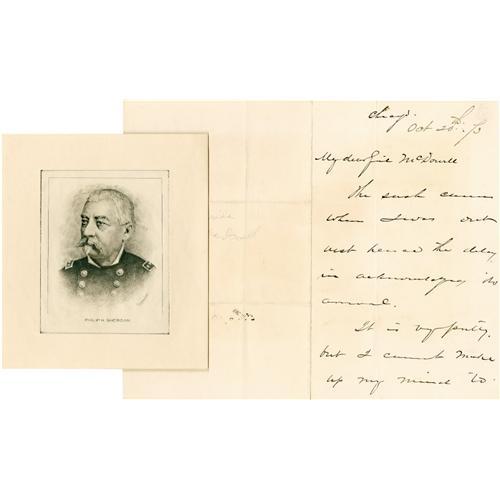 PHILIP H. SHERIDAN
Chicago.
Oct 20th /73
My dear Gen McDowell
The sash came
when I was out
west hence the delay
in acknowledging its
arrival.
It is very pretty
but I cannot make
up my mind to